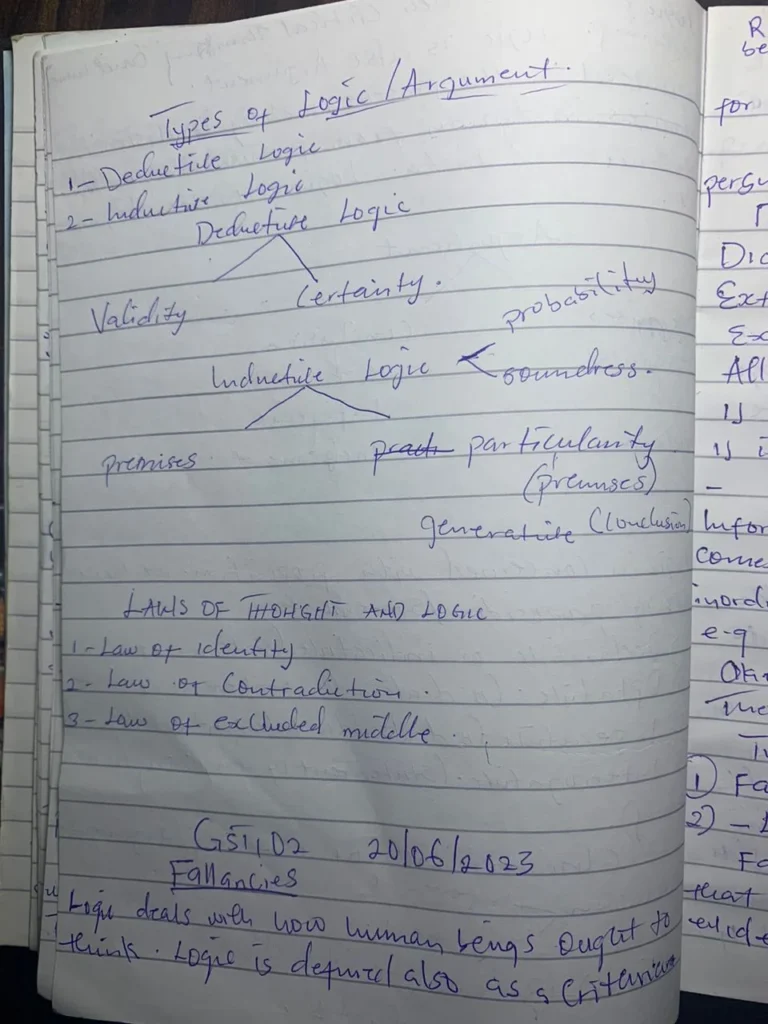 Types of Logic/Argument.
1- Deductive Logic
2- Inductive Logic
Deductive Logic
Validity
Certainty.
probability
Inductive Logic
soundness.
premises
particularity
(premises)
generative (Conclusion)
LAWS OF THOUGHT AND LOGIC
1- Law of identity
2- Law of Contradiction.
3- Law of excluded middle.
GST102 20/06/2023
Fallancies
Logic deals with how human beings ought to
think. Logic is defined also as a Criterion
R
be
for
Dic
All
is
is i
Infor
come
inordi
e-g
1) Fa
2) -
Fa
that